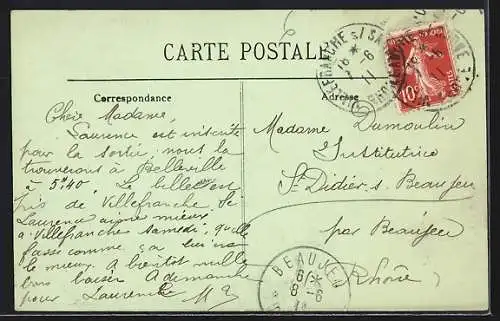 CARTE POSTALE
Correspondance
Adresse
VILLEFRANCHE s/ SA
RHONE
16 *
7 - 6
11
10c
POSTES
Chère Madame,
Laurence est inscrite
pour la sortie, nous la
trouverons à Belleville
à 5h40. Le billet est
pris de Villefranche. Si
Laurence aime mieux
à Villefranche samedi, qu'elle
fasse comme ça lui ira
le mieux. A bientôt mille
bons baisers A dimanche
pour Laurence
Madame Dumoulin
Institutrice
St Didier s. Beaujeu
par Beaujeu
Rhône
BEAUJEU
6 *
8 - 6